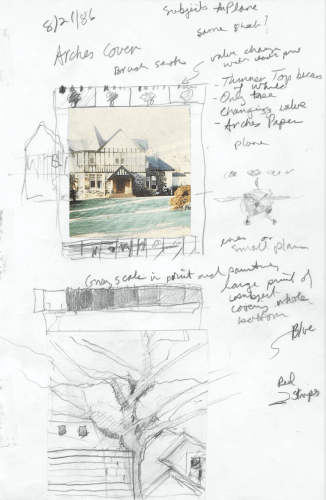 8/21/86
Subjects to Plane
same sheet!
Arches Cover
Brush series
value change
with each one
- Thinner Top because
of wind
- Only tree
Changing value
- Arches Paper
plane
ones or
small plane
Gray scale in print and painting
large print of
subject
cover whole
bottom
Blue
Red
Stripes